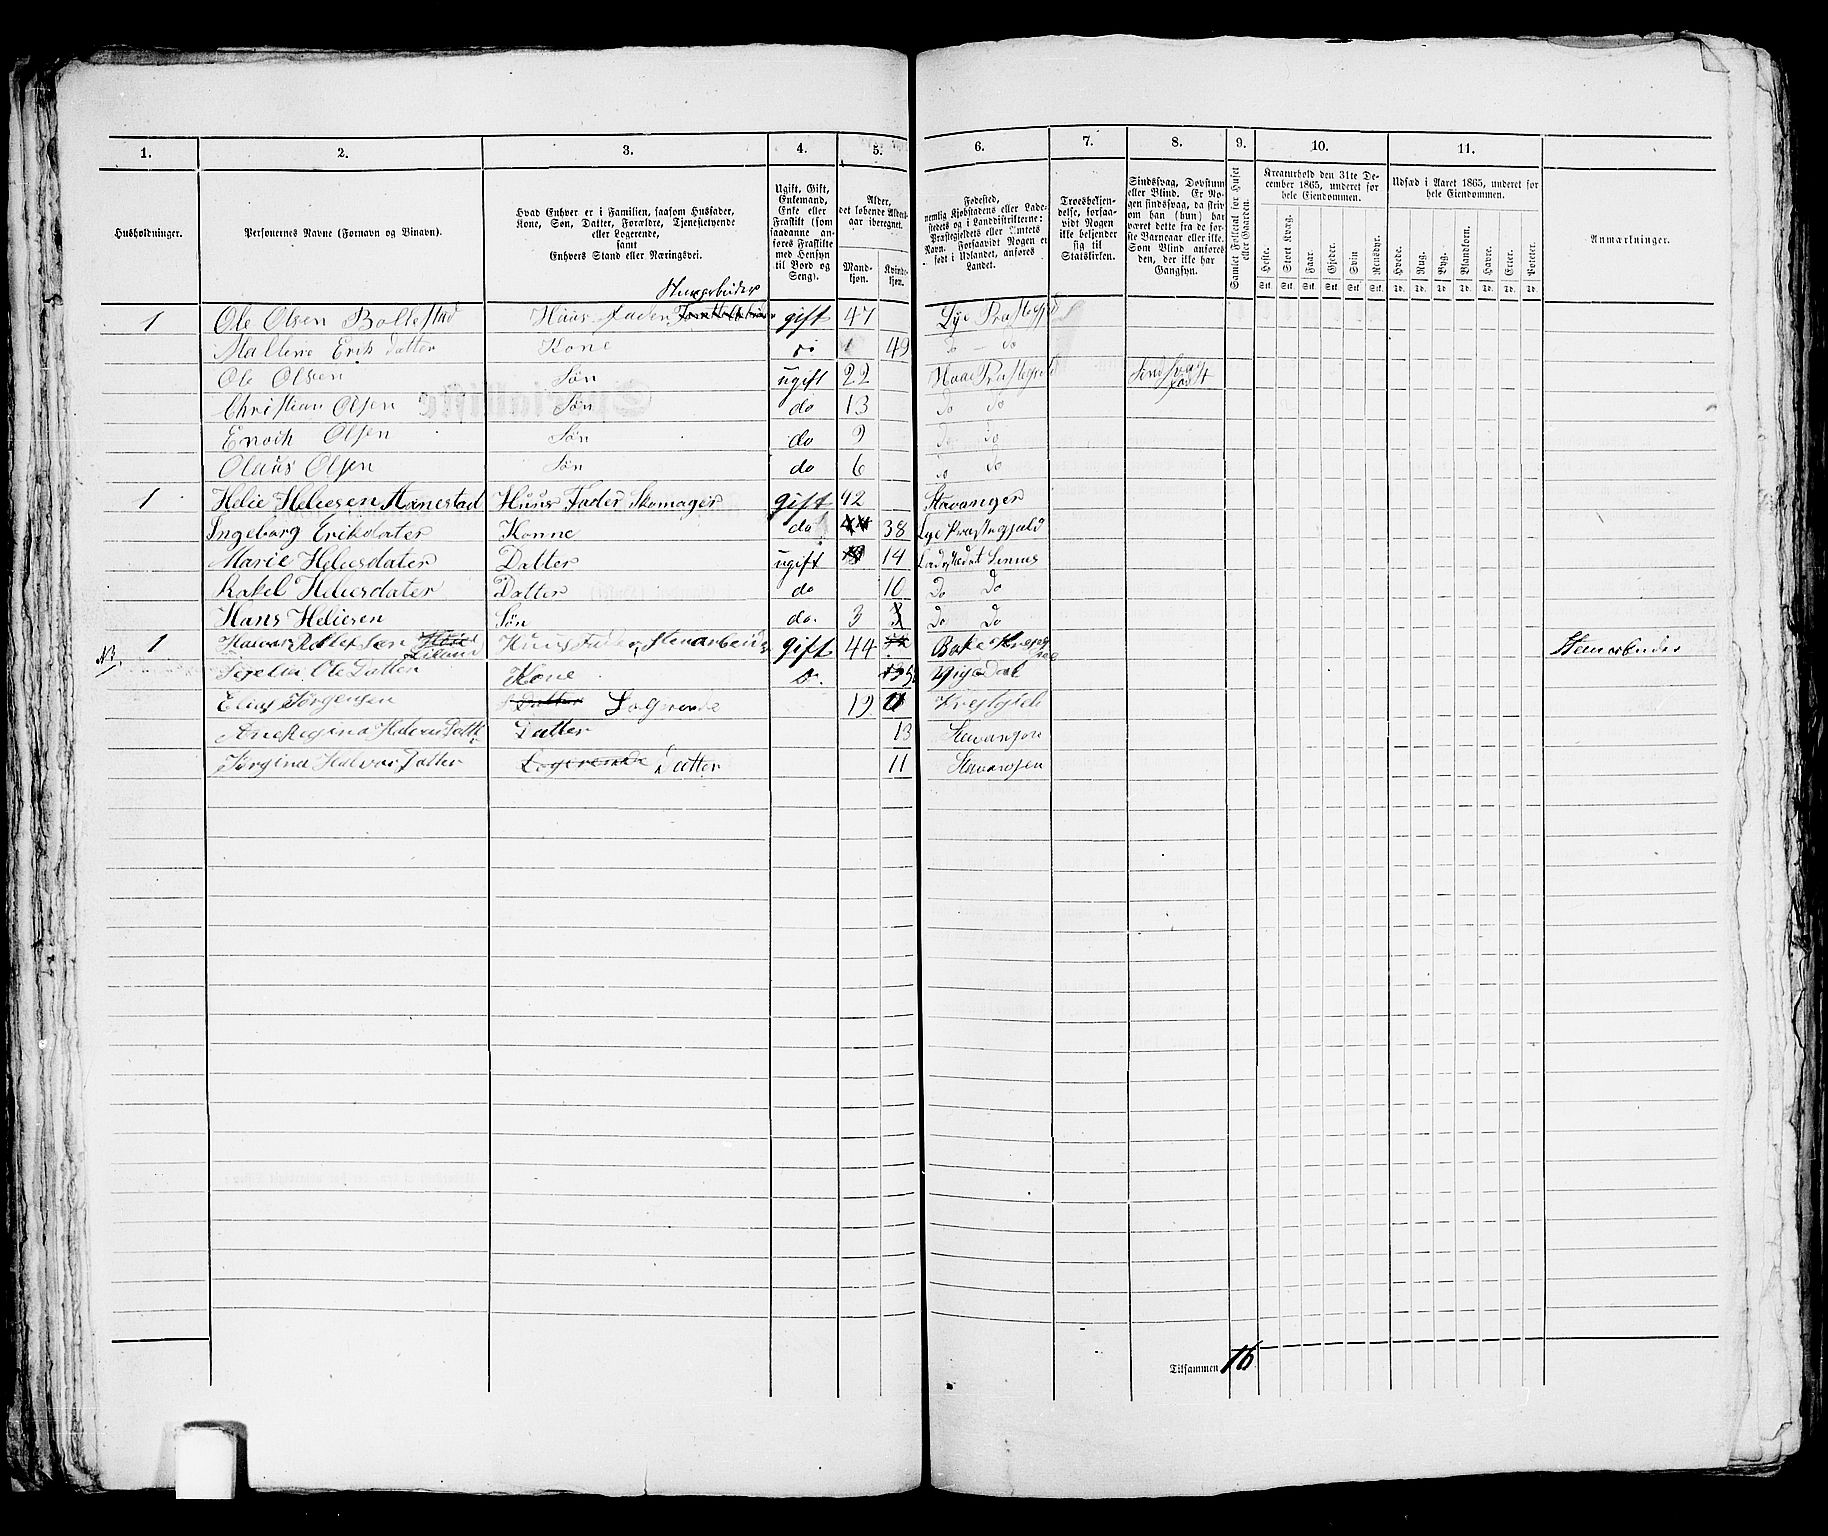 1. 2. 3. 4. 5. 6. 7. 8. 9. 10. 11.
Husholdninger.
Personernes Navne (Fornavn og Vinavn).
Hvad Enhver er i Familien, saasom Husfader, Kone, Søn, Datter, Forældre, Tjenestetyende eller Logerende, samt Enhvers Stand eller Næringsvei.
Ugift, Gift, Enkemand, Enke eller Fraskilt (som saadanne anføres Fraskilte med Hensyn til Bord og Seng).
Alder, det løbende Aldersaar iberegnet.
Mandkjøn. Kvindekjøn.
Fødested, nemlig Kjøbstadens eller Ladestedets og i Landdistrikterne: Præstegjeldets eller Amtets Navn. Forsaavidt Nogen er født i Udlandet, anføres Landet.
Troesbekjendelse, forsaavidt Nogen ikke bekjender sig til Statskirken.
Sindssvag, Døvstum eller Blind. Er Nogen sindssvag, da skrives om han (hun) har været dette fra de første Barneaar eller ikke. Som Blind anføres den, der ikke har Gangsyn.
Samlet Folketal for Huset eller Gaarden.
Kreaturhold den 31te December 1865, underet for hele Eiendommen.
Heste. Stort Kvæg. Faar. Gjeder. Svin Rensdyr.
Stk. Stk. Stk. Stk. Stk. Stk. Stk.
Udsæd i Aaret 1865, underet for hele Eiendommen.
Hvede. Rug. Byg. Blandkorn. Havre. Erter. Poteter.
Td. Td. Td. Td. Td. Td. Td.
Anmærkninger.
Stenarbeider
1 Ole Olsen Bollestad Huus fader gift 47 Lye Præstegjld
Mallene Erik datter Kone do 49 do - do
Ole Olsen Søn ugift 22 Haae Præstegjld Sindsvag
Christian Olsen Søn do 13 do do
Enoch Olsen Søn do 9 do do
Olaus Olsen Søn do 6 do do
1 Helie Heliesen Hanestad Huus Fader Skomager gift 42 Stavanger
Ingeborg Eriksdater Konne do 44 38 Lye Præstegjæld
Marie Heliesdater Datter ugift 14 Ladestædet Sennes
Rakel Heliesdater Datter do 10 Do Do
Hans Heliesen Søn do. 3 3 Do Do
NB. 1 Huus Fader Stenarbeider gift 44 Stenarbeider
Liland
Serelia Ole Datter Kone D. Gigedal
Elias Jørgensen Datter Logerende 19
Ane Regina Halvor Datter Datter 13 Stavanger
Jørgina Halvor Datter Logerende Datter 11 Stavanger
Tilsammen 16